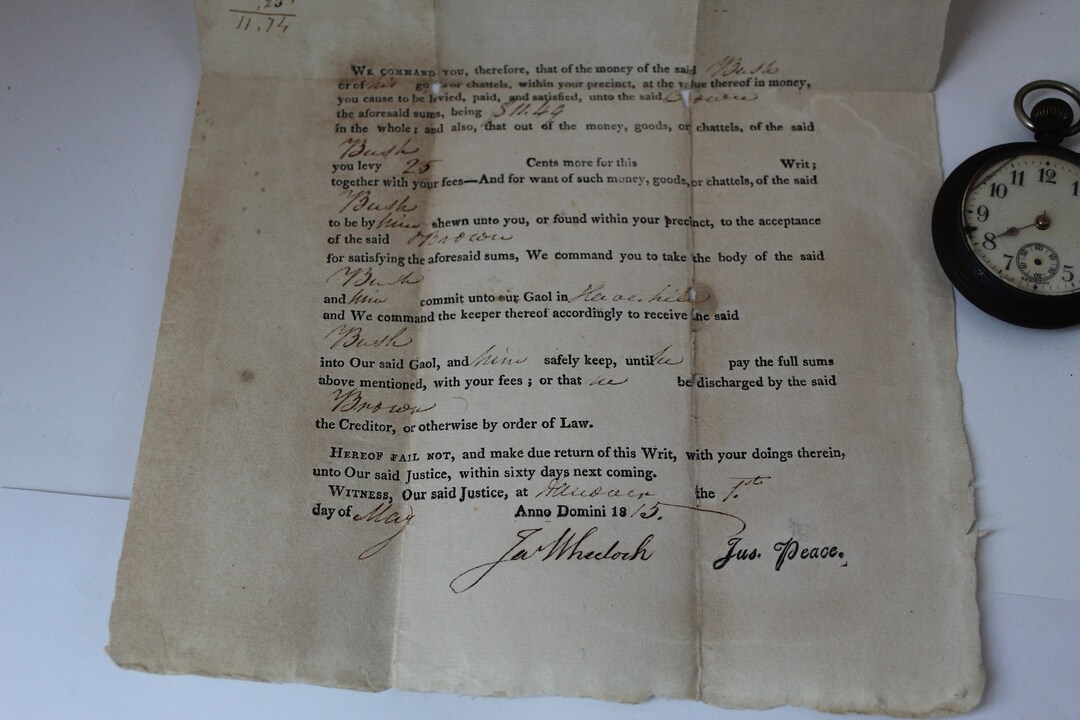 .25
11.74
WE COMMAND YOU, therefore, that of the money of the said Bush
or of his go s or chattels, within your precinct, at the v lue thereof in money,
you cause to be levied, paid, and satisfied, unto the said Brown
the aforesaid sums, being $11.49
in the whole; and also, that out of the money, goods, or chattels, of the said
Bush
you levy 25 Cents more for this Writ;
together with your fees—And for want of such money, goods, or chattels, of the said
Bush
to be by him shewn unto you, or found within your precinct, to the acceptance
of the said Brown
for satisfying the aforesaid sums, We command you to take the body of the said
Bush
and him commit unto our Gaol in Haverhill
and We command the keeper thereof accordingly to receive he said
Bush
into Our said Gaol, and him safely keep, until he pay the full sums
above mentioned, with your fees; or that he be discharged by the said
Brown
the Creditor, or otherwise by order of Law.
HEREOF FAIL NOT, and make due return of this Writ, with your doings therein,
unto Our said Justice, within sixty days next coming.
WITNESS, Our said Justice, at Hanover the 1st
day of May Anno Domini 1815.
Ja Wheelock Jus. Peace.
10 11 12
9
8
7 5